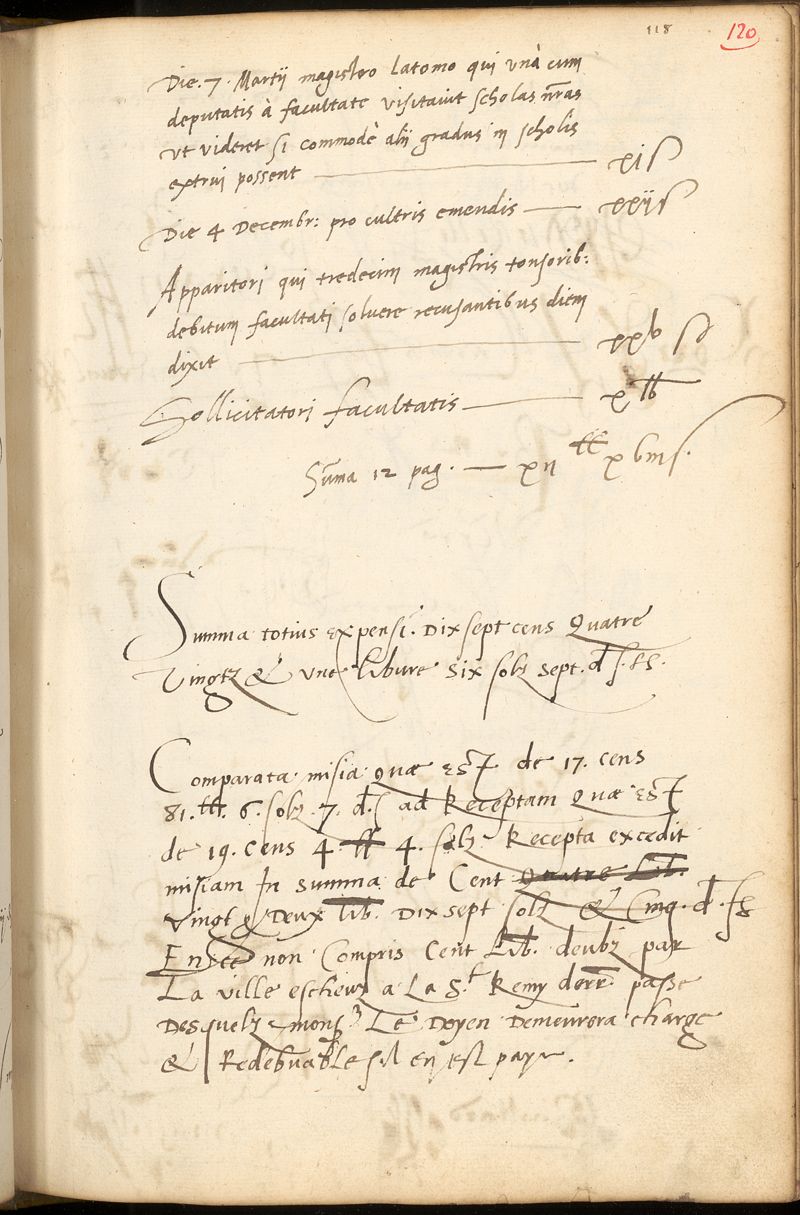 118
120
Die .7. Martij magistro latomo qui unà cum
deputatis à facultate visitavit scholas nr̃as
ut videret si commodè alij gradus in scholis
extrui possent — xi s
Die 4 Decembr: pro cultris emendis — xxij s
Apparitori qui tredecim magistris tonsorib:
debitum facultati solvere recusantibus diem
dixit — xxv s
Sollicitatori facultatis — x lb
Sum̃a 12 pag. —
Summa totius expensi. Dix sept cens Quatre
Vingtz & une libvre six solz sept. d
Comparata misia quæ est de 17. cens
81. lb. 6. solz .7. d. ad Receptam Quæ est
de 19. Cens 4 lb 4. solz Recepta excedit
misiam In summa de Cent Quatre Lib.
vingt & Deux lib. Dix sept solz & Cinq. d.
En ce non Compris Cent Lib. deubz par
La ville escheuz a La St Remy derr. passe
Desquelz monsr Le Doyen Demeurera charge
& Redebvable sil en est paye.